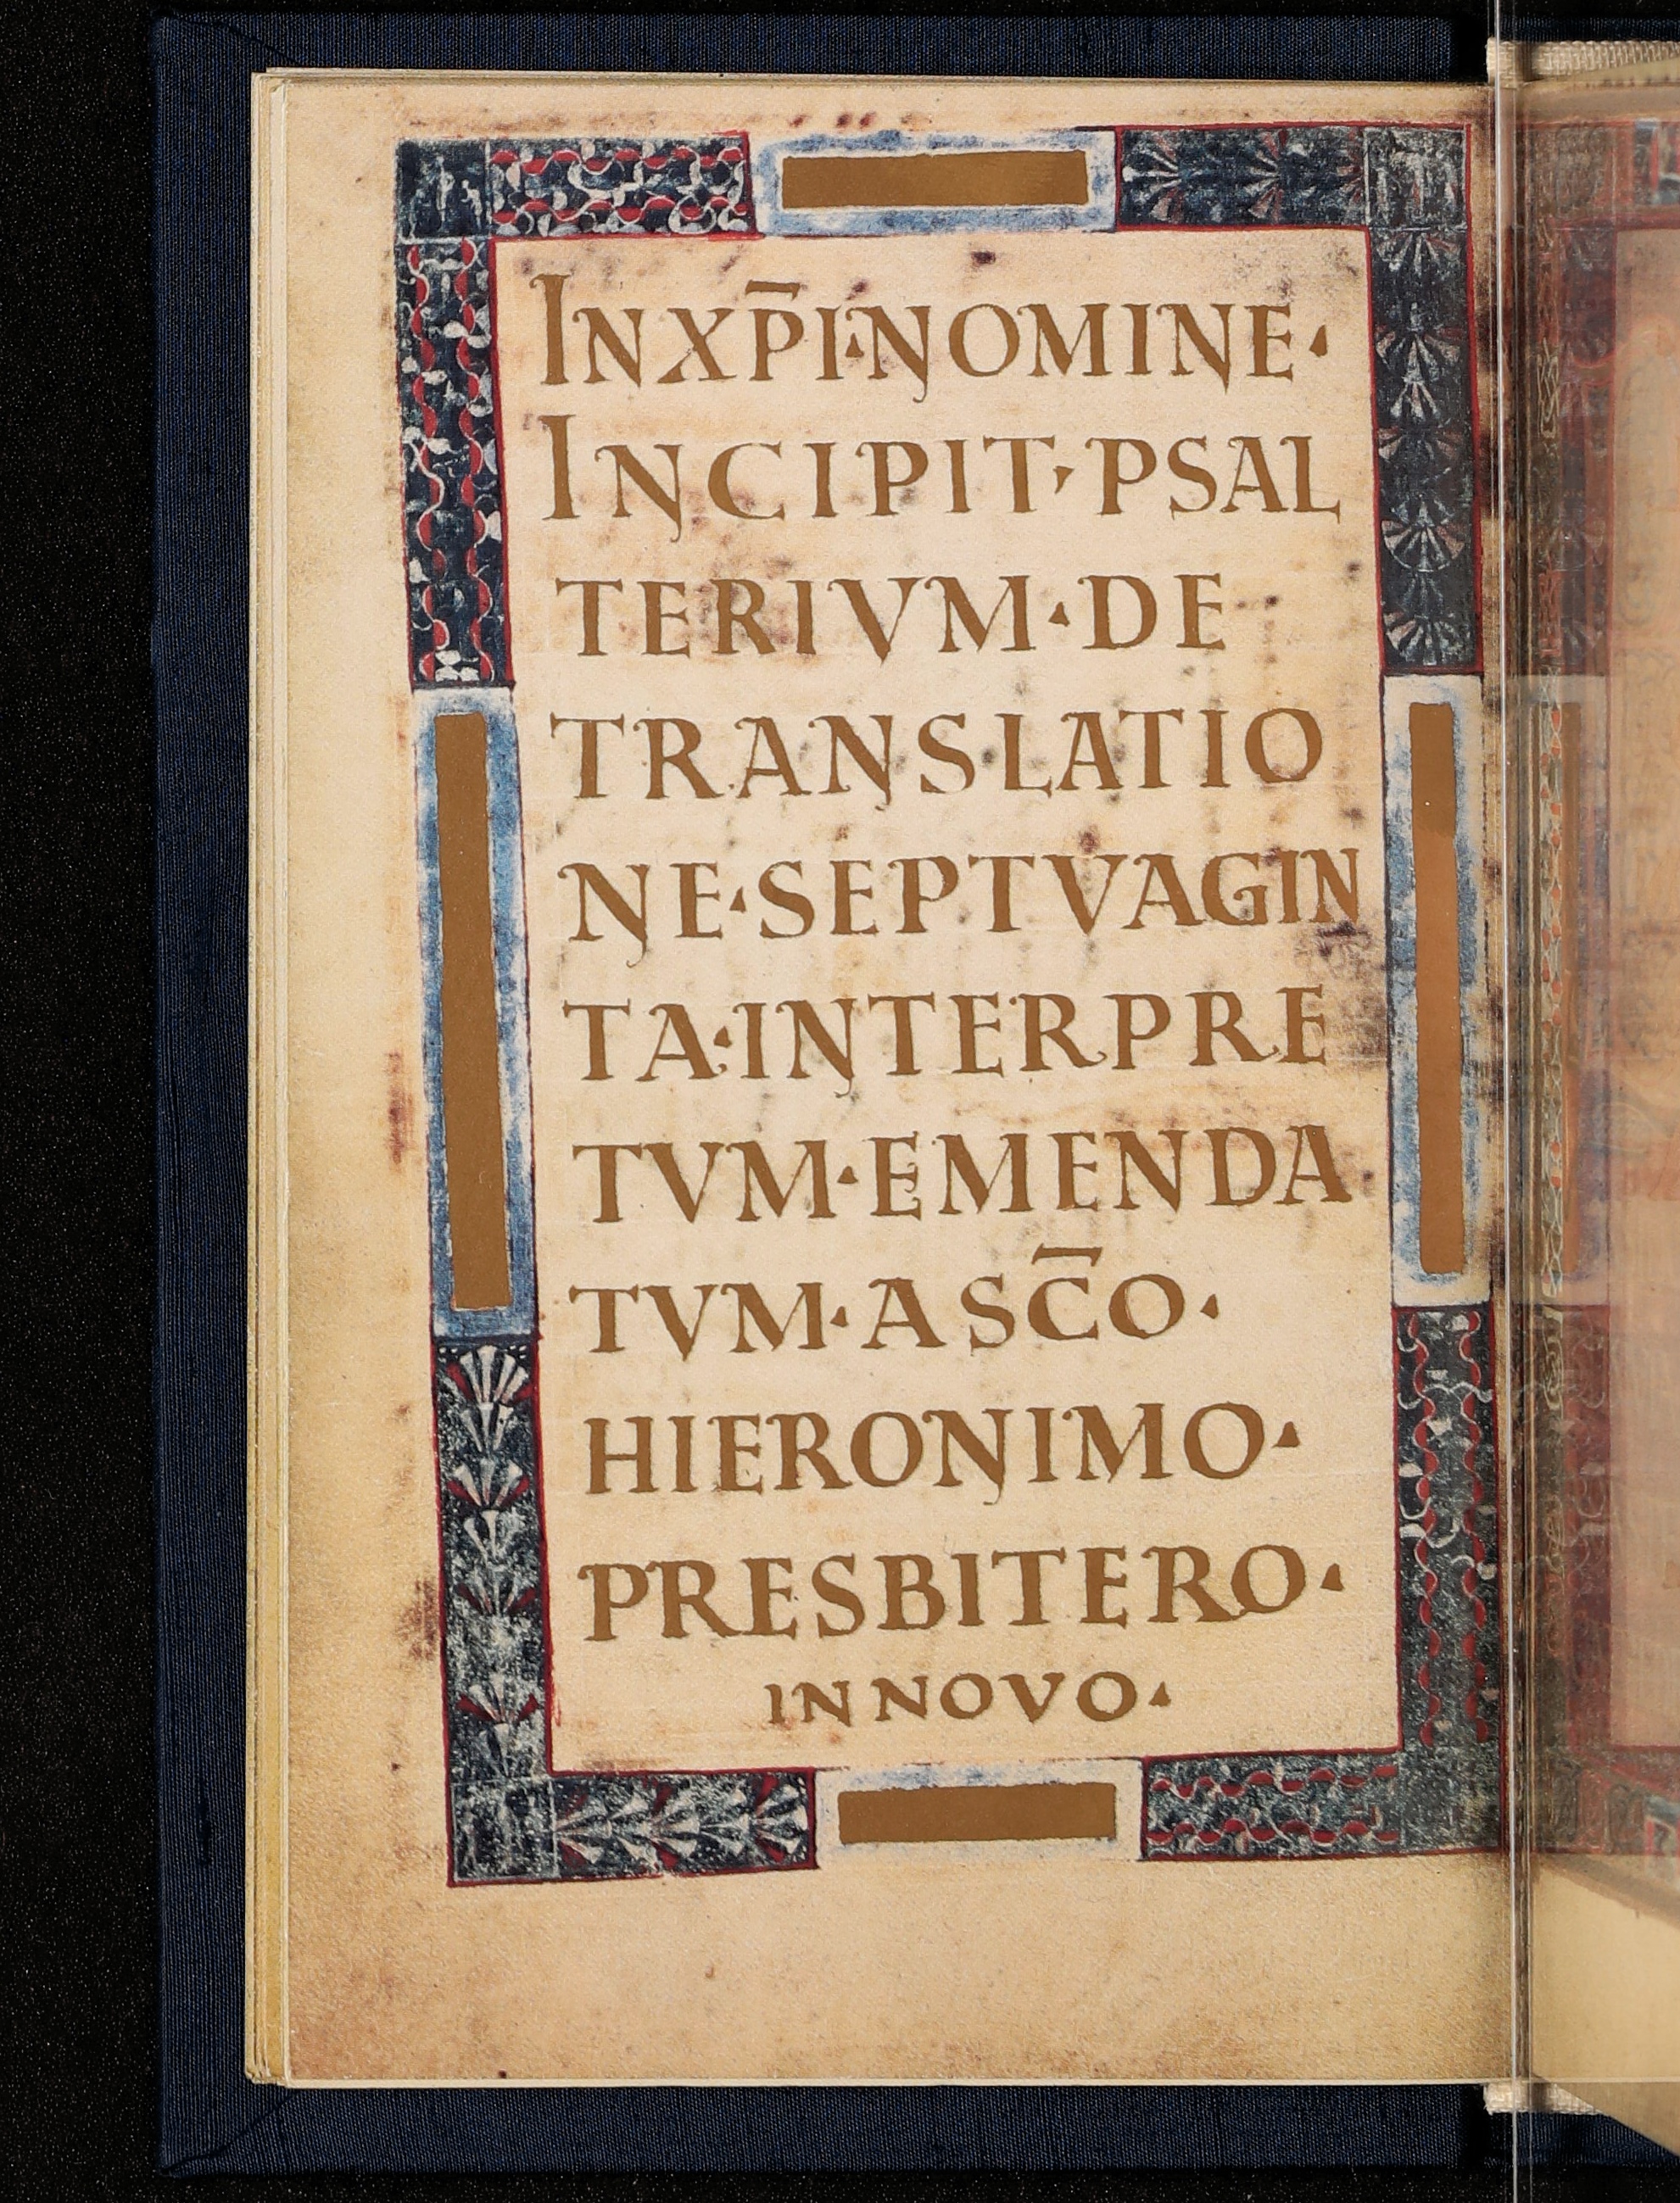 IN XP̄I · NOMINE ·
INCIPIT · PSAL
TERIVM · DE
TRANSLATIO
NE · SEPTVAGIN
TA · INTERPRE
TVM · EMENDA
TVM · A SC̄O ·
HIERONIMO ·
PRESBITERO ·
IN NOVO ·